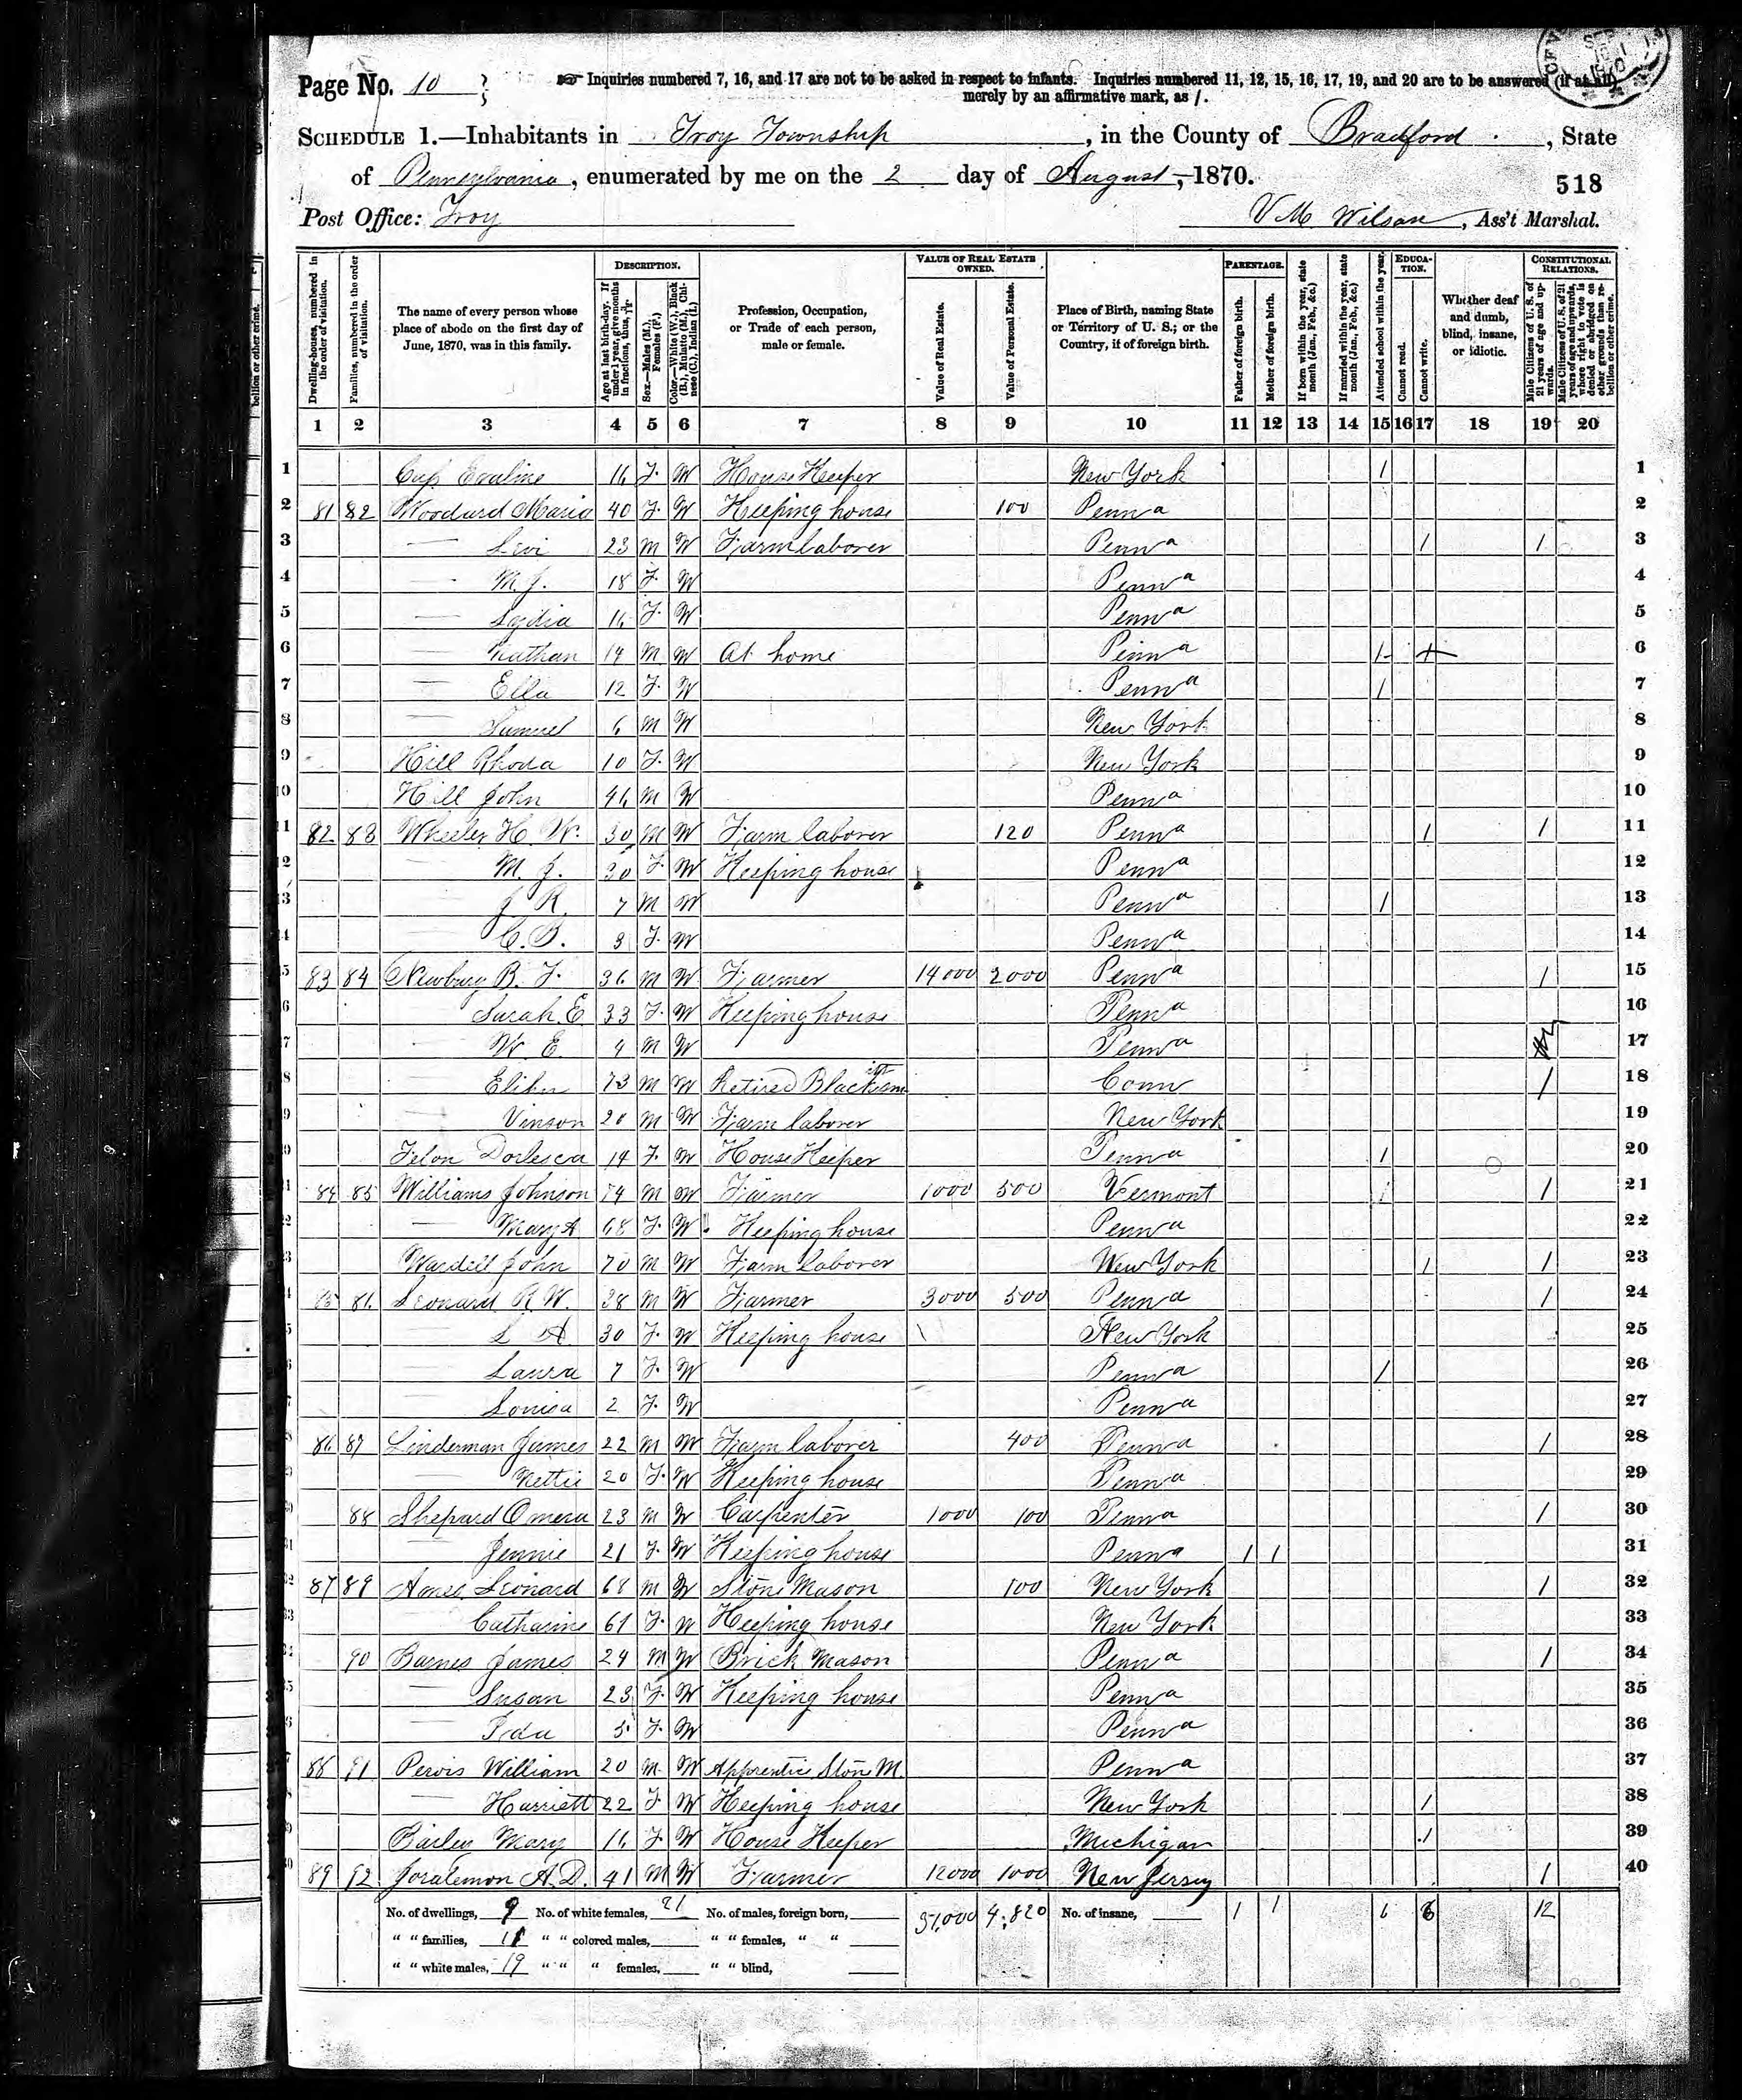 Page No. 10
Inquiries numbered 7, 16, and 17 are not to be asked in respect to infants. Inquiries numbered 11, 12, 15, 16, 17, 19, and 20 are to be answered (if at all)
merely by an affirmative mark, as /.
SCHEDULE 1.—Inhabitants in Troy Township, in the County of Bradford, State
of Pennsylvania, enumerated by me on the 2 day of August, 1870.
518
Post Office: Troy
V M Wilson, Ass't Marshal.
Dwelling-houses, numbered in the order of visitation.
Families, numbered in the order of visitation.
The name of every person whose place of abode on the first day of June, 1870, was in this family.
DESCRIPTION.
Age at last birth-day. If under 1 year, give months in fractions, thus,
Sex.—Males (M.), Females (F.)
Color.—White (W.), Black (B.), Mulatto (M.), Chinese (C.), Indian (I.)
Profession, Occupation, or Trade of each person, male or female.
VALUE OF REAL ESTATE OWNED.
Value of Real Estate.
Value of Personal Estate.
Place of Birth, naming State or Territory of U. S.; or the Country, if of foreign birth.
PARENTAGE.
Father of foreign birth.
Mother of foreign birth.
If born within the year, state month (Jan., Feb., &c.)
If married within the year, state month (Jan., Feb., &c.)
Attended school within the year.
EDUCATION.
Cannot read.
Cannot write.
Whether deaf and dumb, blind, insane, or idiotic.
CONSTITUTIONAL RELATIONS.
Male Citizens of U. S. of 21 years of age and upwards.
Male Citizens of U. S. of 21 years of age and upwards, whose right to vote is denied or abridged on other grounds than rebellion or other crime.
1 2 3 4 5 6 7 8 9 10 11 12 13 14 15 16 17 18 19 20
1 Evaline 16 F. W House Keeper New York 1 1
2 81 82 Woodard Maria 40 F. W Keeping house 100 Penna 2
3 — Levi 23 M W Farm laborer Penna 1 1 3
4 — M. J. 18 F. W Penna 4
5 — Lydia 16 F. W Penna 5
6 — Nathan 14 M W At home Penna 1 6
7 — Ella 12 F. W Penna 1 7
8 — Samuel 6 M W New York 8
9 Hill Rhoda 10 F. W New York 9
10 Hill John 46 M W Penna 10
11 82 83 Wheeler H. W. 30 M W Farm laborer 120 Penna 1 1 11
12 M. J. 30 F. W Keeping house Penna 12
13 J R. 7 M W Penna 1 13
14 C. B. 3 F. W Penna 14
15 83 84 Newbury B. F. 36 M W Farmer 14000 2000 Penna 1 15
16 Sarah E. 33 F. W Keeping house Penna 16
17 W. E. 4 M W Penna 17
18 Elihu 73 M W Retired Blacksmith Conn 1 18
19 Vinson 20 M W Farm laborer New York 19
20 Dorlesca 14 F. W House Keeper Penna 1 20
21 84 85 Williams Johnson 74 M W Farmer 1000 500 Vermont 1 21
22 — Mary A 68 F. W Keeping house Penna 22
23 Wardell John 70 M W Farm laborer New York 1 1 23
24 85 86 Leonard R. W. 38 M W Farmer 3000 500 Penna 1 24
25 — L A 30 F. W Keeping house New York 25
26 — Laura 7 F. W Penna 1 26
27 — Louisa 2 F. W Penna 27
28 86 87 Linderman James 22 M W Farm laborer 400 Penna 1 28
29 — Nettie 20 F. W Keeping house Penna 29
30 88 Shepard Omera 23 M W Carpenter 1000 100 Penna 1 30
31 — Jennie 21 F. W Keeping house Penna 1 1 31
32 87 89 Ames Leonard 68 M W Stone Mason 100 New York 1 32
33 Catharine 61 F. W Keeping house New York 33
34 90 Barnes James 24 M W Brick Mason Penna 1 34
35 — Susan 23 F. W Keeping house Penna 35
36 — Ida 5 F. W Penna 36
37 88 91 Pervis William 20 M. W Apprentice Stone M. Penna 37
38 — Harriett 22 F W Keeping house New York 1 38
39 Bailey Mary 16 F. W House Keeper Michigan 1 39
40 89 92 Joralemon A. D. 41 M W Farmer 12000 1000 New Jersey 1 40
No. of dwellings, 9 No. of white females, 21 No. of males, foreign born, 31,000 4,820 No. of insane, 1 1 6 6 12
" " families, 11 " " colored males, " " females, " "
" " white males, 19 " " " females, " " blind,